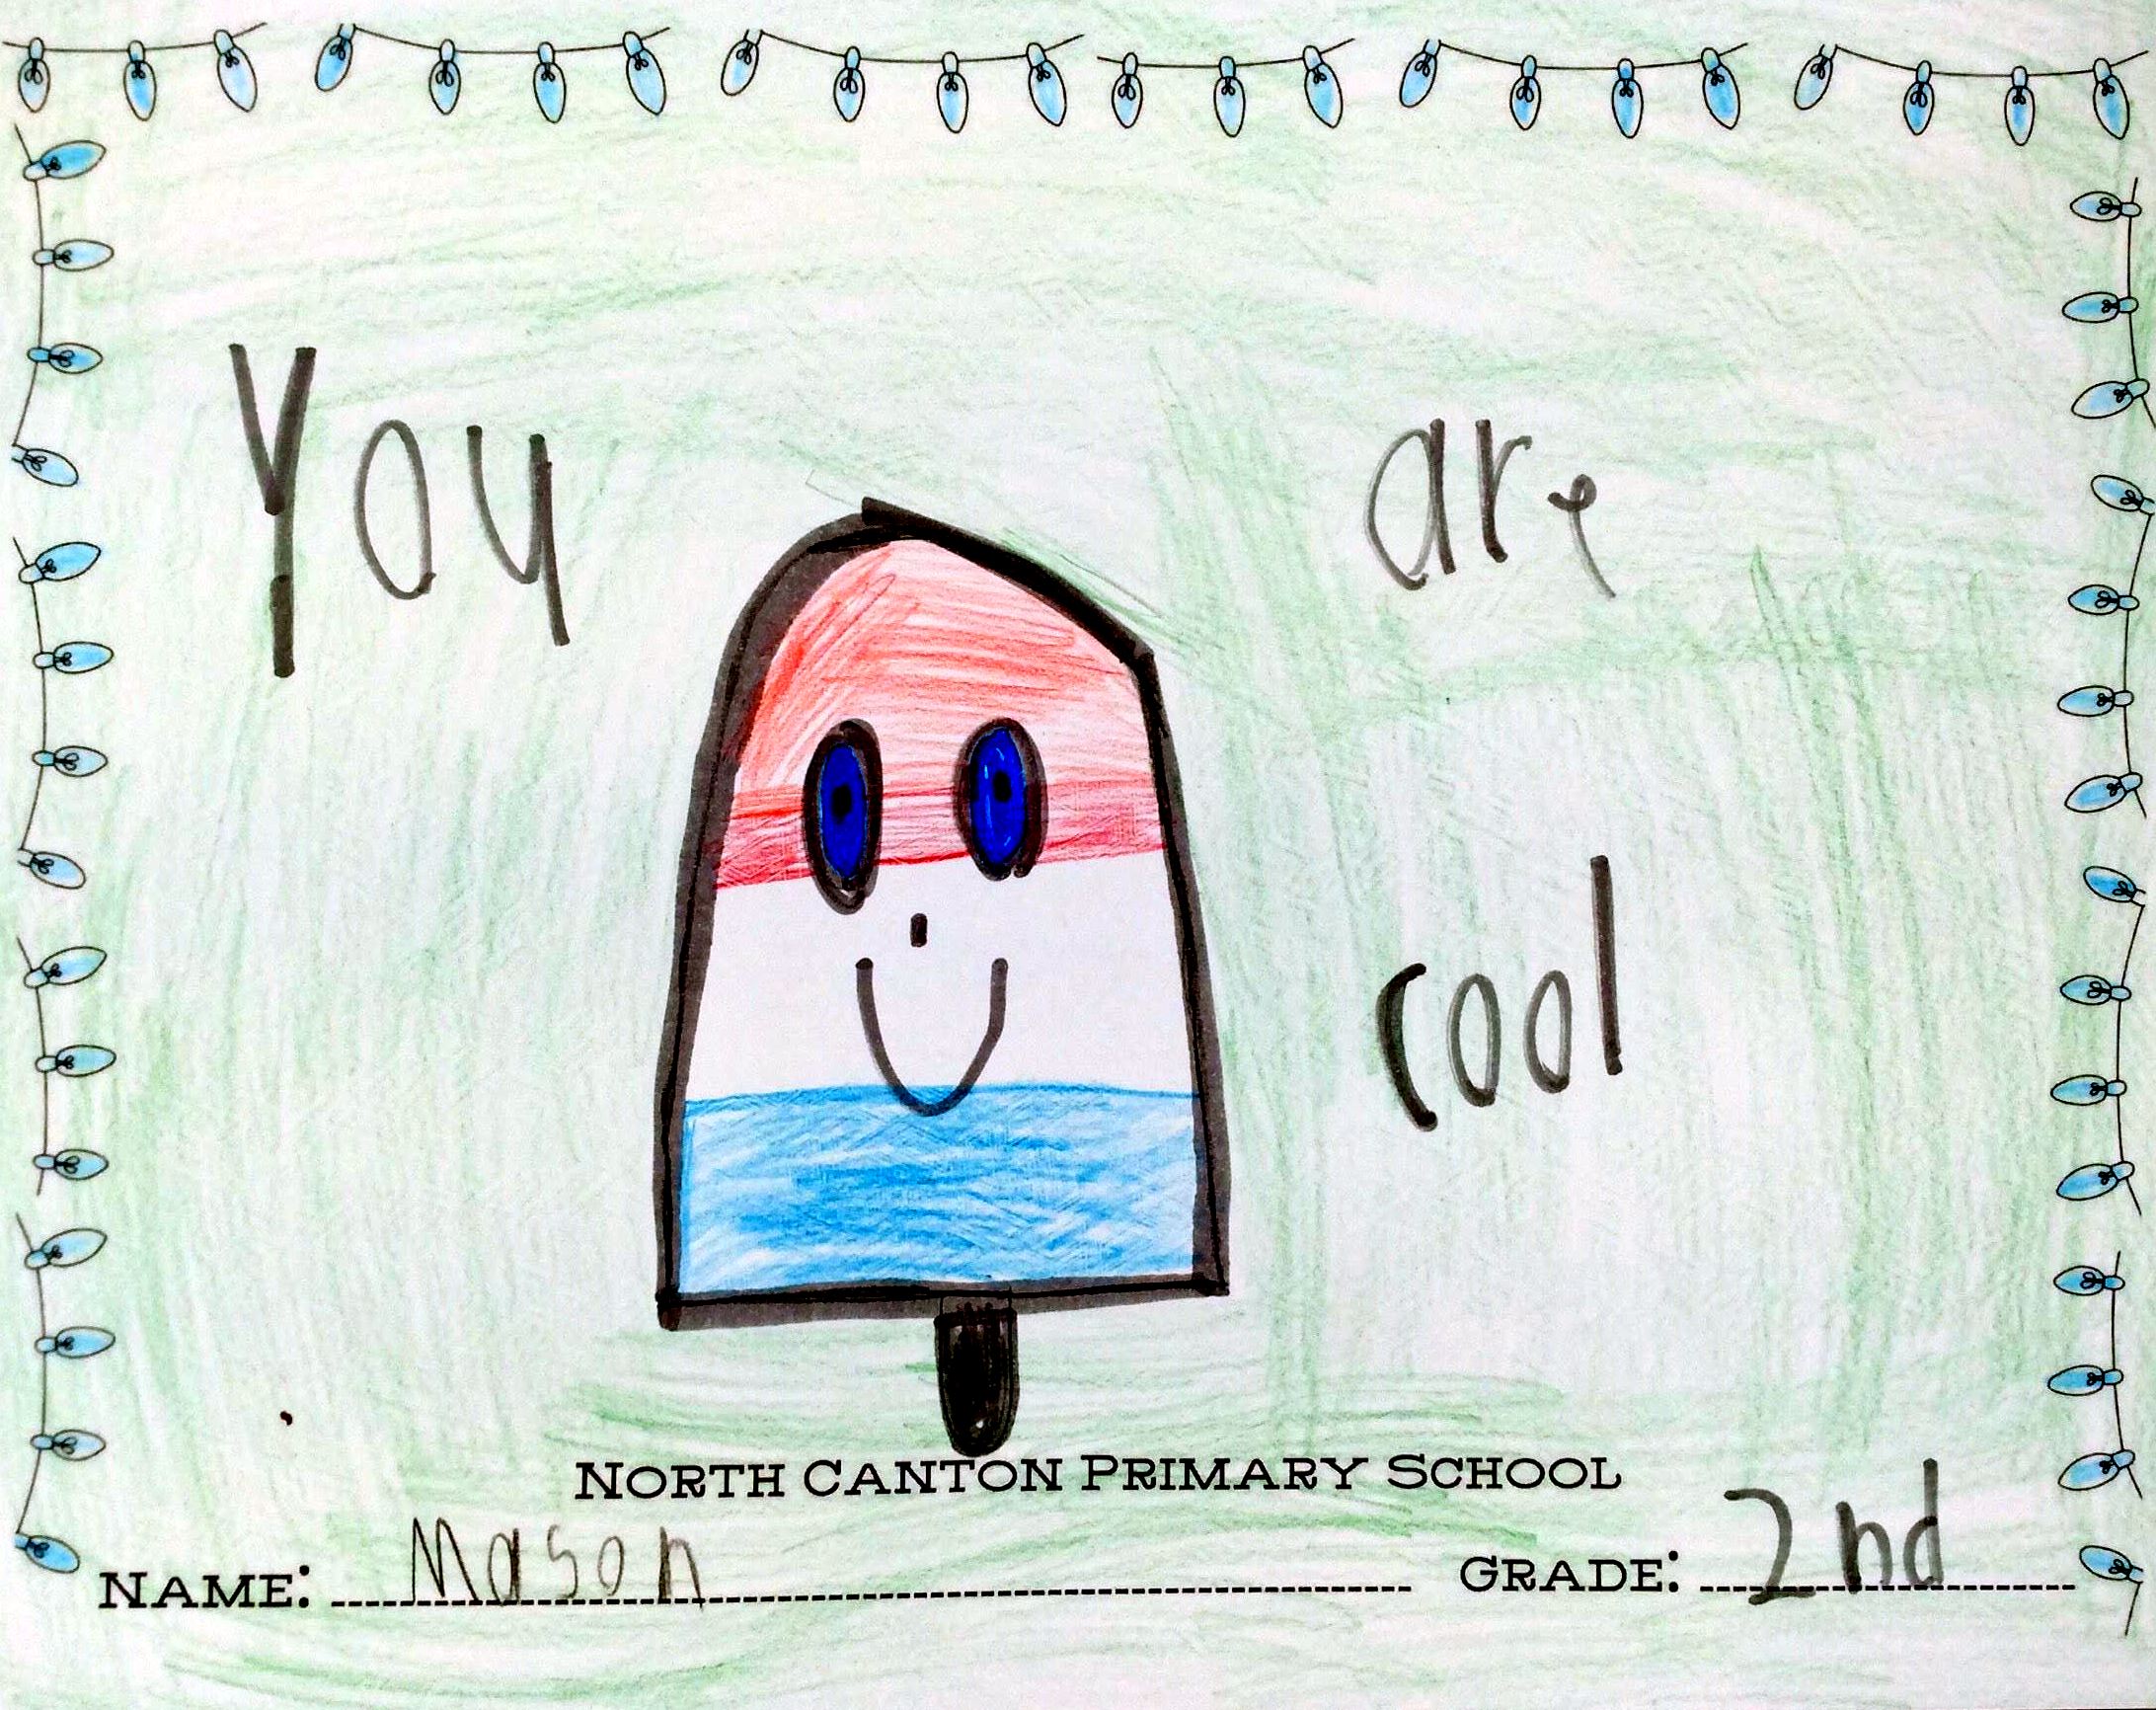 You are
cool
North Canton Primary School
Name: Mason Grade: 2nd